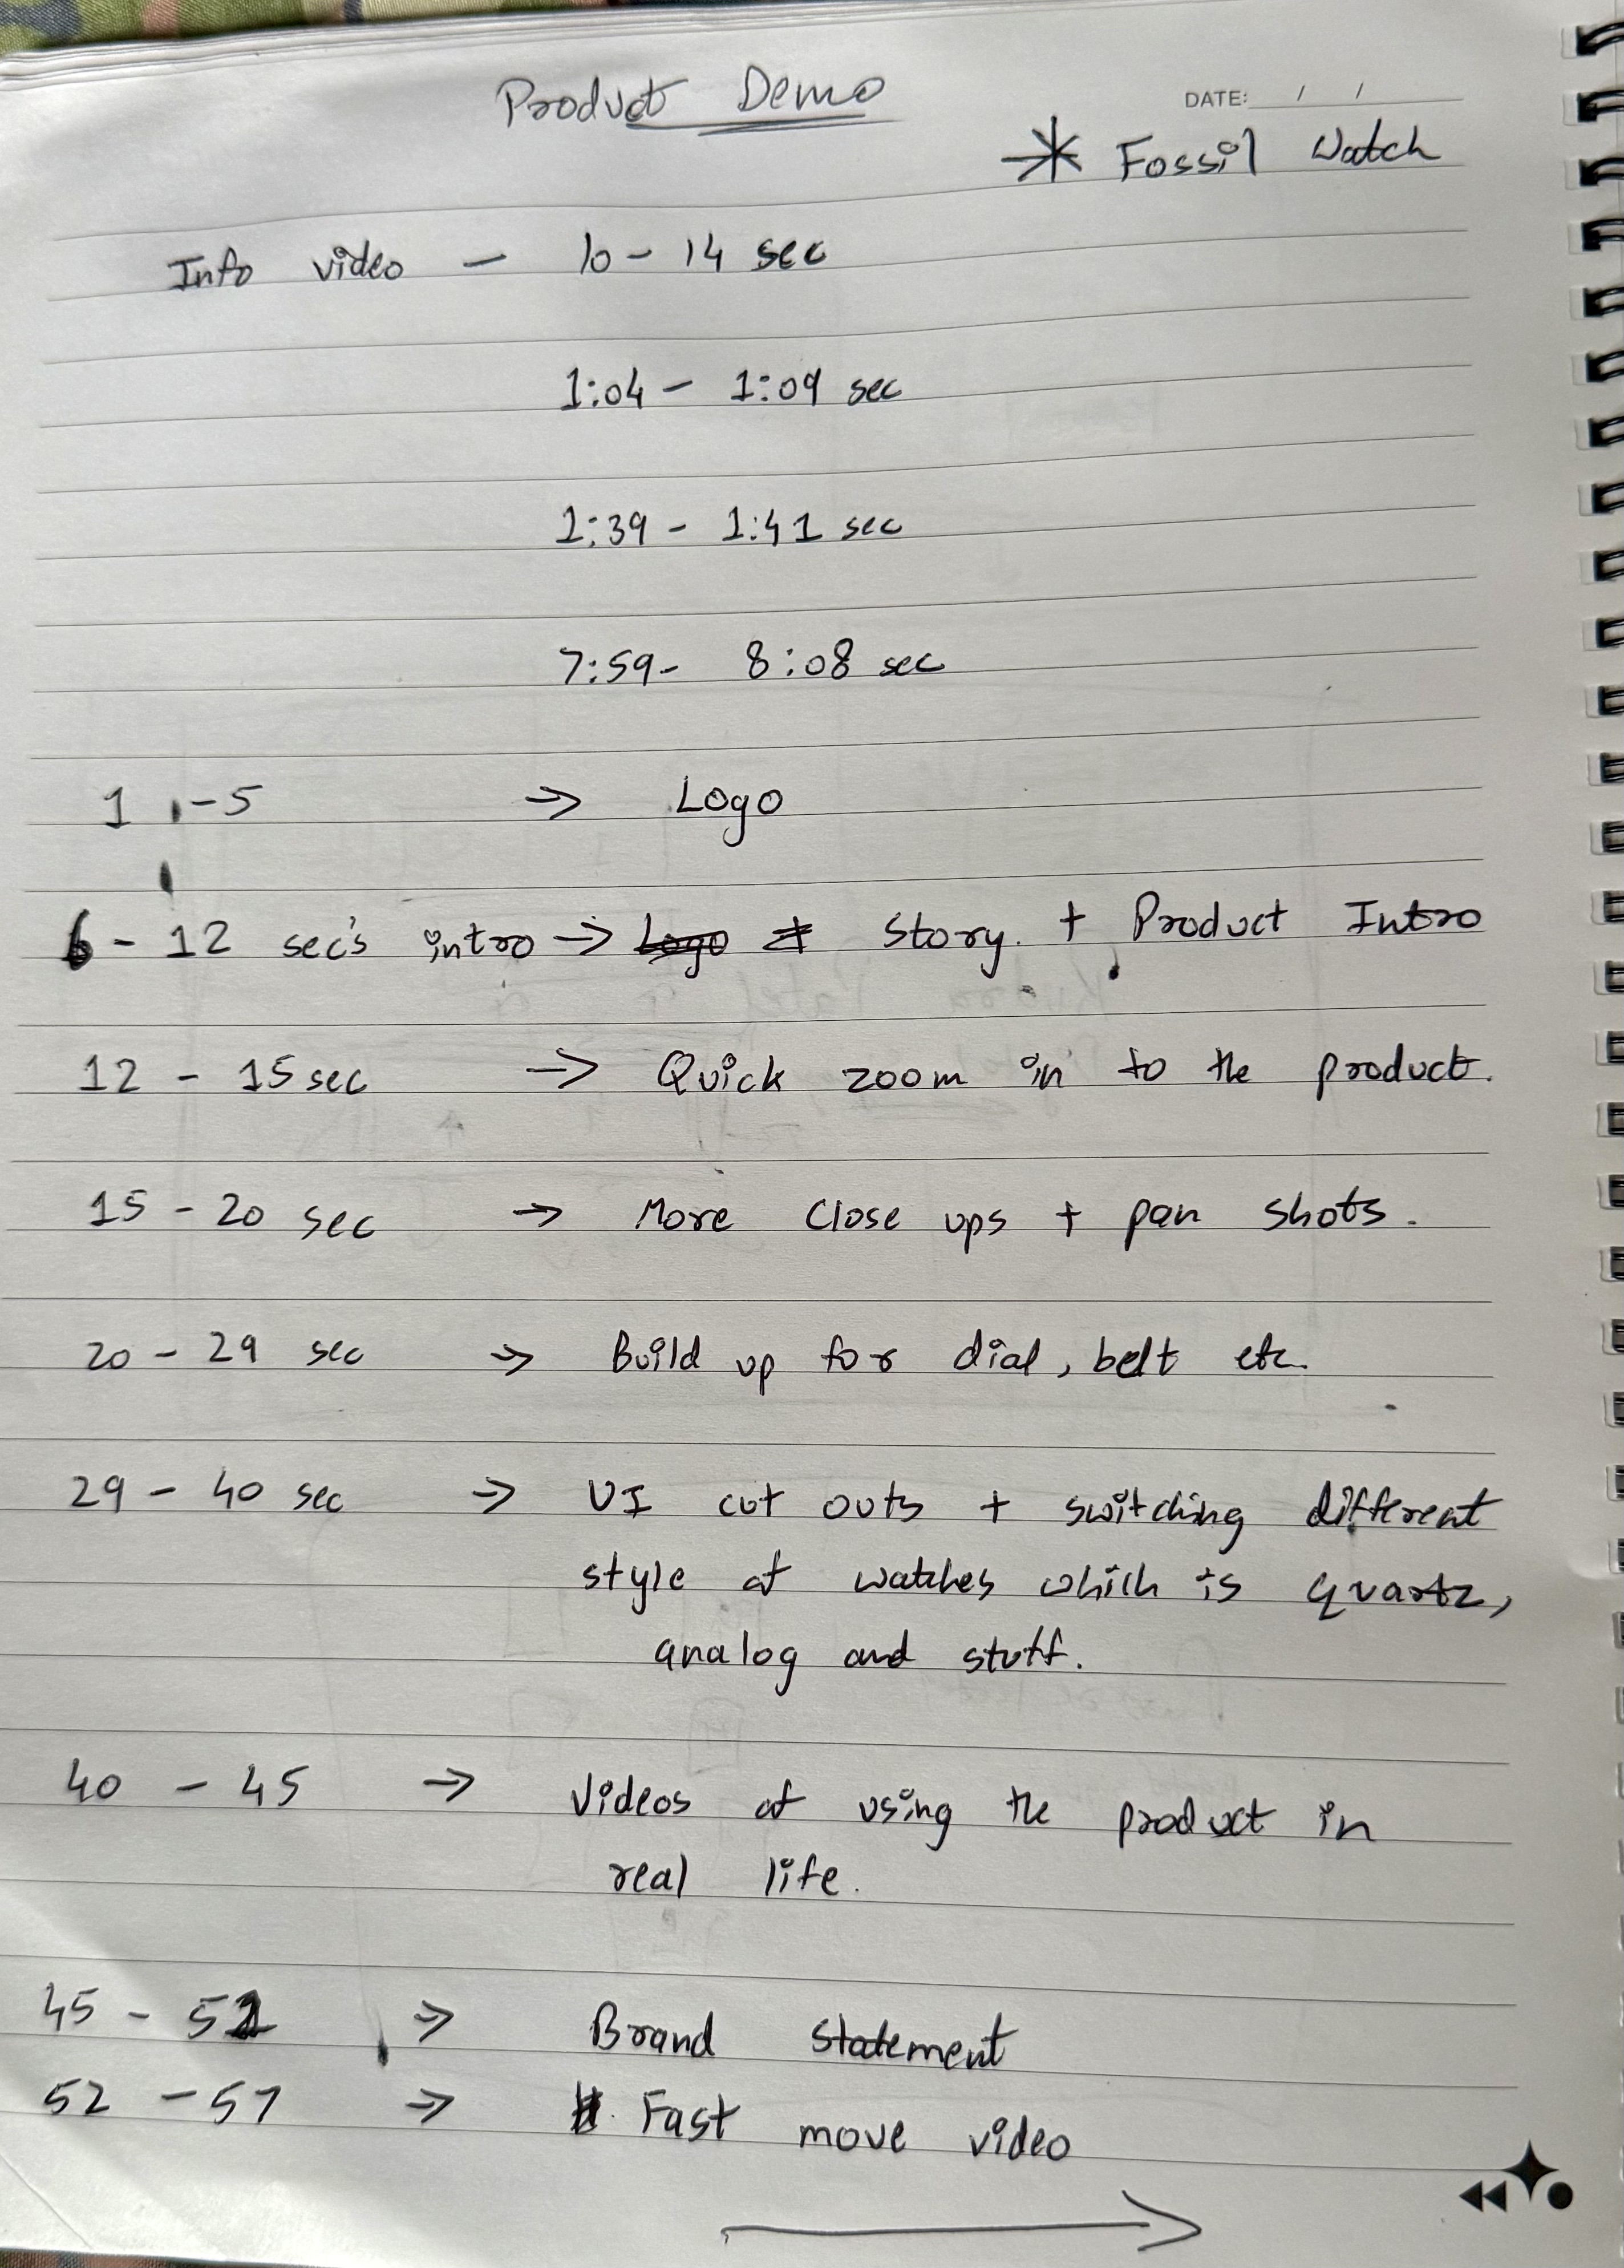 Product Demo
DATE: / /
* Fossil Watch
Info video - 10 - 14 sec
1:04 - 1:09 sec
1:39 - 1:41 sec
7:59 - 8:08 sec
1 -5 → Logo
6 - 12 sec's intro → story. + Product Intro
12 - 15 sec → Quick zoom in to the product.
15 - 20 sec → More close ups + pan shots.
20 - 29 sec → Build up for dial, belt etc.
29 - 40 sec → UI cut outs + switching different
style of watches which is quartz,
analog and stuff.
40 - 45 → Videos of using the product in
real life.
45 - 52 → Brand statement
52 - 57 → Fast move video
→